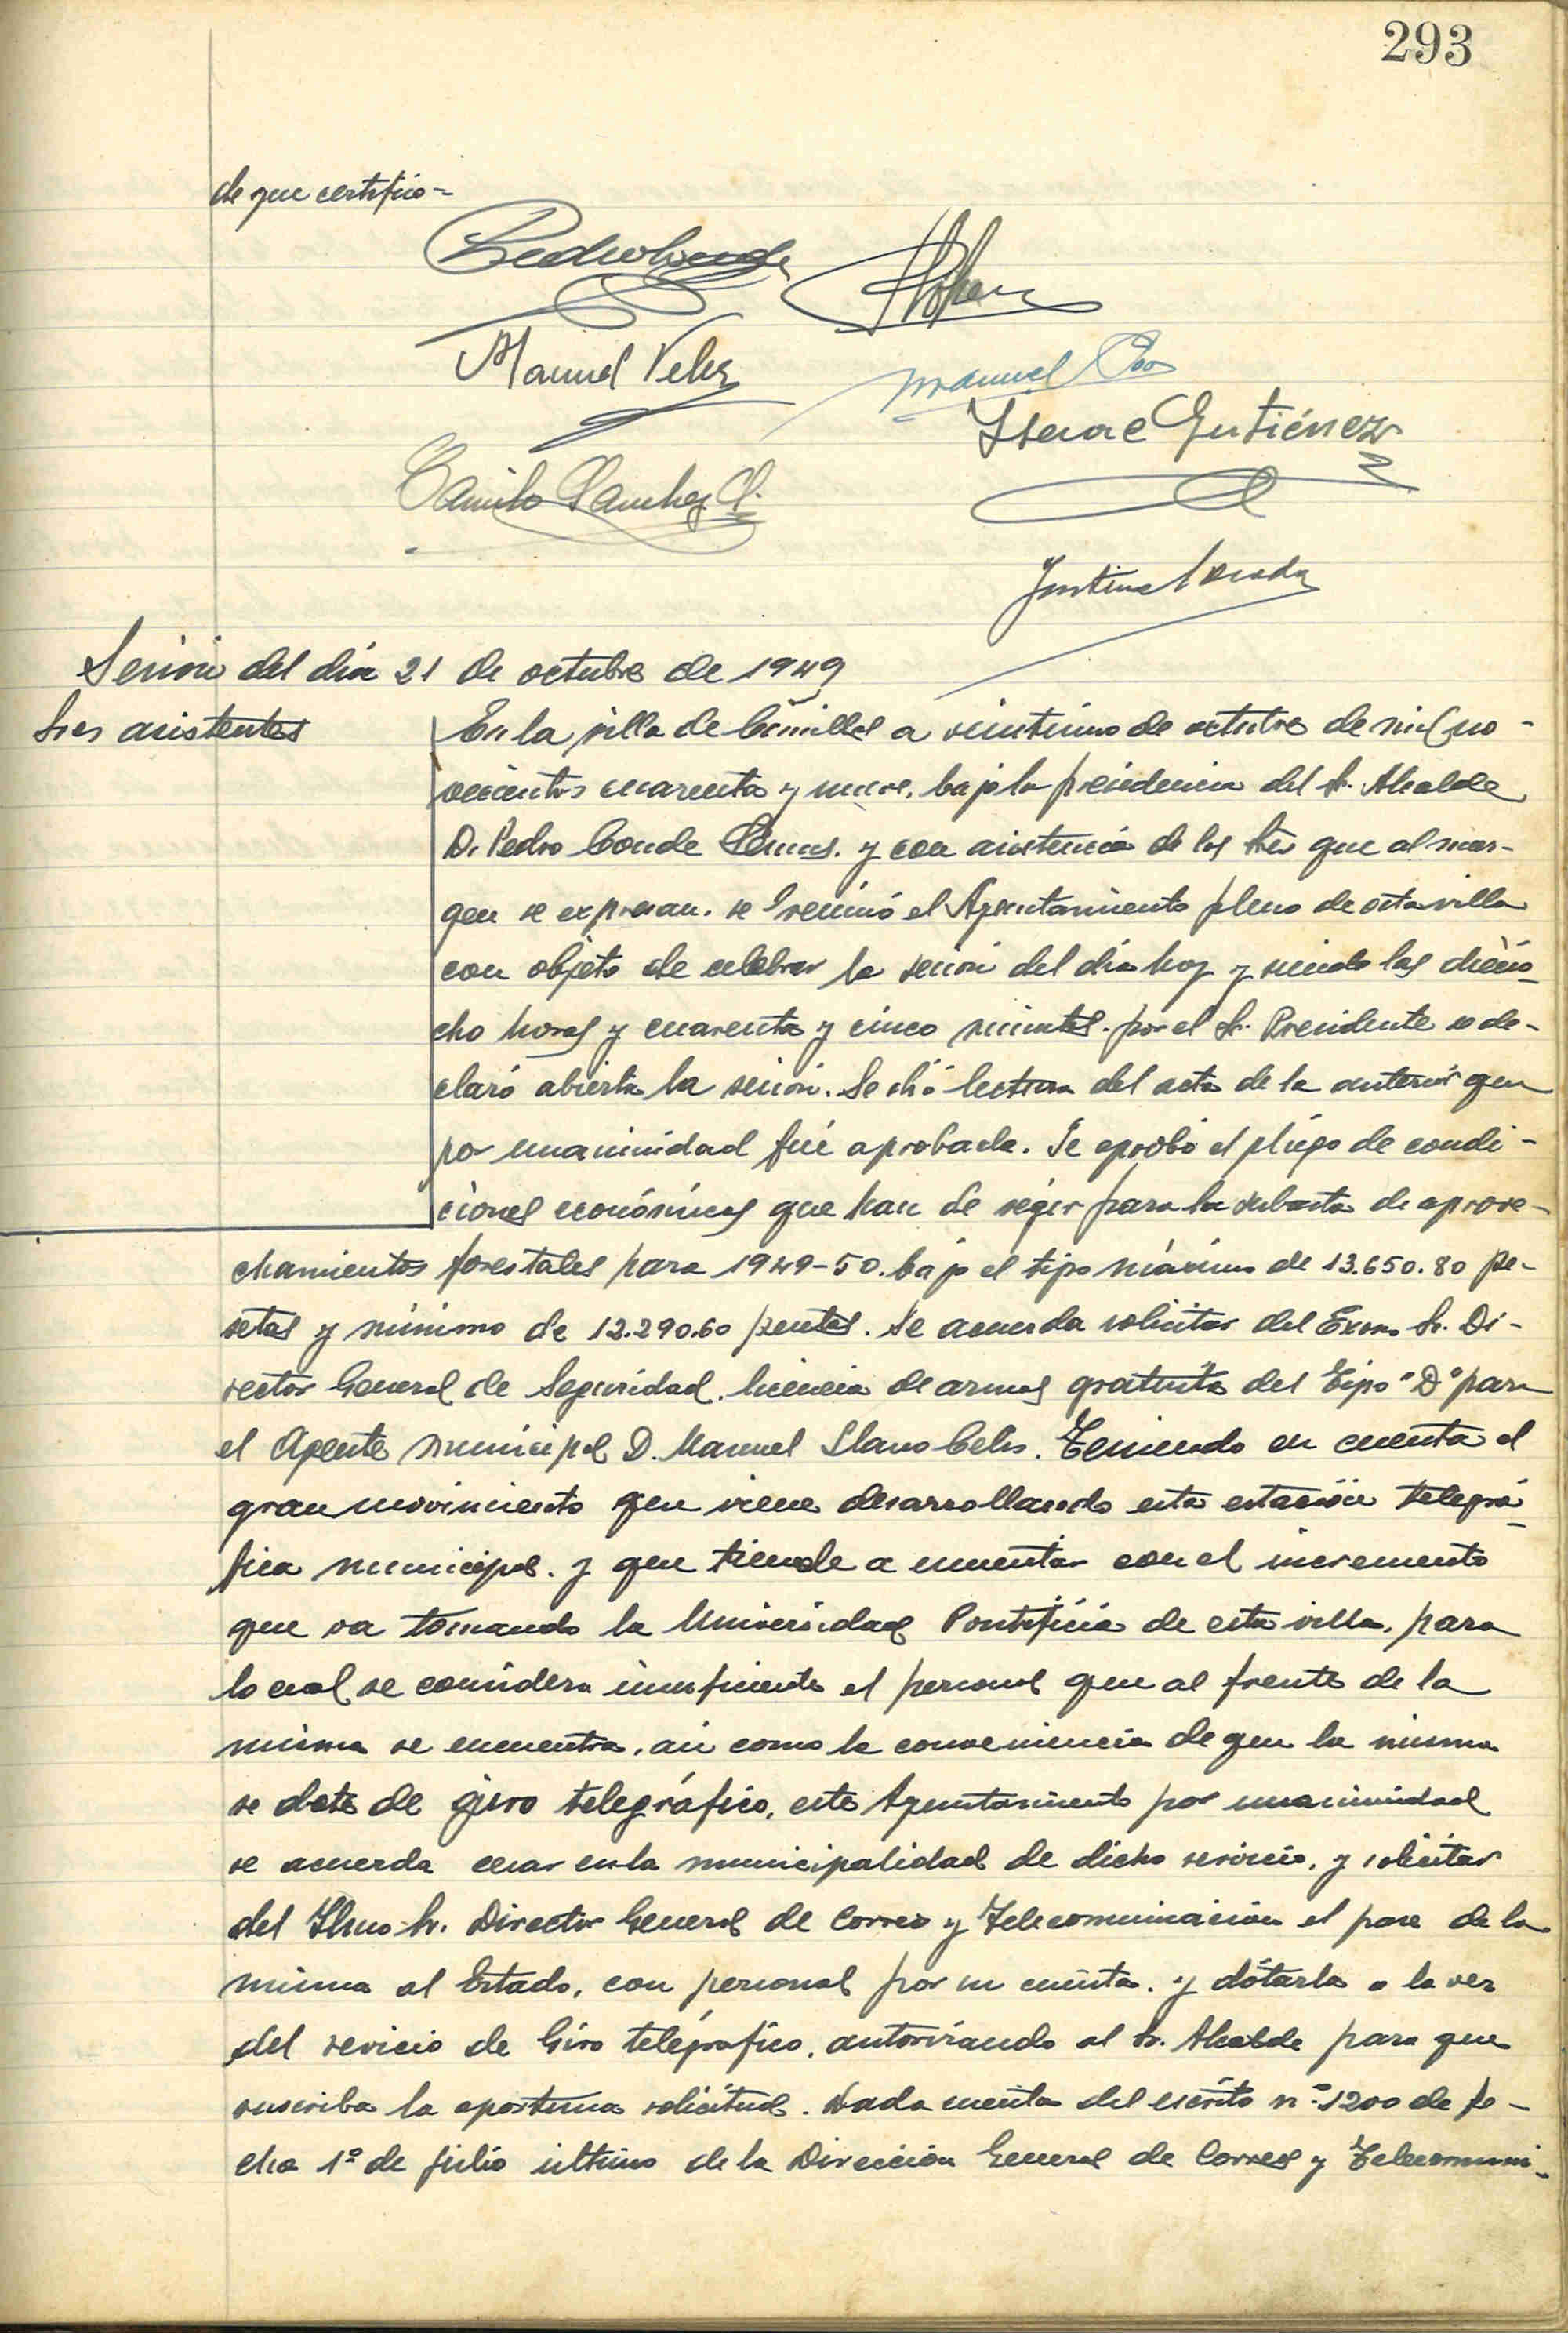 293
de que certifico=
Pedro Conde
Manuel Velez
Manuel
Isaac Gutiérrez
Camilo Sanchez
Sesion del dia 21 de octubre de 1949
Sres asistentes
En la villa de Comillas a veintiuno de octubre de mil no-
vecientos cuarenta y nueve, bajo la presidencia del Sr. Alcalde
D. Pedro Conde y con asistencia de los Sres que al mar-
gen se expresan. se reunió el Ayuntamiento pleno de esta villa
con objeto de celebrar la sesion del dia hoy y siendo las diecio-
cho horas y cuarenta y cinco minutos. por el Sr. Presidente se de-
claró abierta la sesion. Se dió lectura del acta de la anterior que
por unanimidad fué aprobada. Se aprobó el pliego de condi-
ciones económicas que han de regir para la subasta de aprove-
chamientos forestales para 1949-50. bajo el tipo máximo de 13.650.80 pe-
setas y minimo de 12.290.60 pesetas. Se acuerda solicitar del Excmo Sr. Di-
rector General de Seguridad. licencia de armas gratuita del Tipo "D" para
el Agente municipal D. Manuel Llano Celis. Teniendo en cuenta el
gran movimiento que viene desarrollando esta estación telegrá-
fica municipal. y que tiende a umentar con el incremento
que va tomando la Universidad Pontificia de esta villa. para
lo cual se considera insuficiente el personal que al frente de la
misma se encuentra, asi como la conveniencia de que la misma
se dote de giro telegráfico, este Ayuntamiento por unanimidad
se acuerda cesar en la municipalidad de dicho servicio, y solicitar
del Ilmo Sr. Director General de Correo y Telecomunicacion el pase de la
misma al Estado, con personal por su cuenta. y dótarla a la vez
del sevicio de Giro telégrafico. autorizando al Sr. Alcalde para que
suscriba la oportuna solicitud. Dada cuenta del escrito nº 1200 de fe-
cha 1º de julio ultimo de la Direccion General de Correos y Telecomuni-